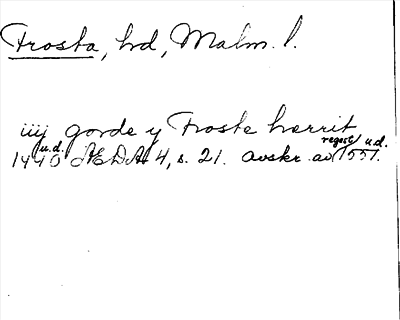 Frosta, hd, Malm. l.
iiij gorde y Froste herrit
1440 u.d. ÆDA 4, s. 21. avskr. av regest u.d. 1551.